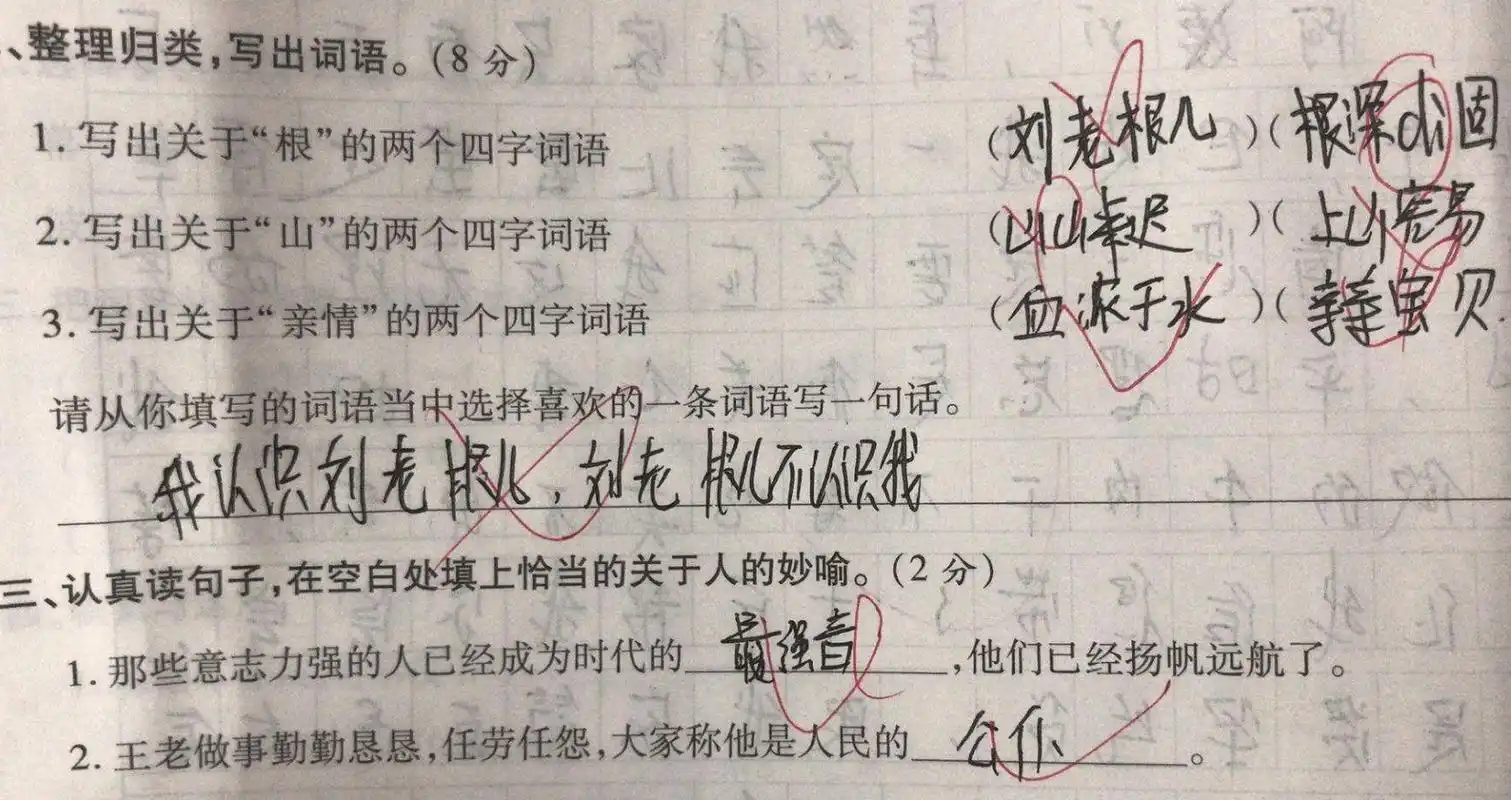 、整理归类,写出词语。(8 分)
1. 写出关于“根”的两个四字词语 (刘老根儿)(根深di固
2. 写出关于“山”的两个四字词语 (山山来迟)(上山容易
3. 写出关于“亲情”的两个四字词语 (血浓于水)(亲亲宝贝
请从你填写的词语当中选择喜欢的一条词语写一句话。
我认识刘老根儿,刘老根儿不认识我
三、认真读句子,在空白处填上恰当的关于人的妙喻。(2 分)
1. 那些意志力强的人已经成为时代的 最强音 ,他们已经扬帆远航了。
2. 王老做事勤勤恳恳,任劳任怨,大家称他是人民的 公仆 。